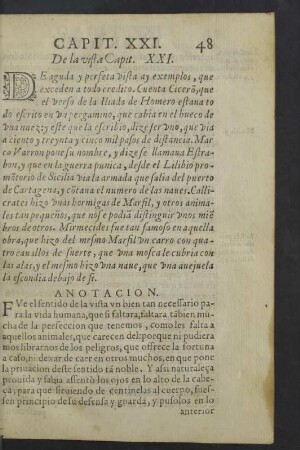 CAPIT. XXI. 48
De la vista Capit. XXI.
DE aguda y perfeta vista ay exemplos, que
exceden a todo credito. Cuenta Cicerõ, que
el verso de la Iliada de Homero estaua to
do escrito en vn pergamino, que cabia en el hueco de
vna nuez: y este que la escribio, dize ser vno, que via
a ciento y treynta y cinco mil pasos de distãcia. Mar
co Varron pone su nombre, y dize se llamaua Estra-
bon, y que en la guerra punica, desde el Lilibio pro-
mõtorio de Sicilia via la armada que salia del puerto
de Cartagena, y cõtaua el numero de las naues. Calli
crates hizo vnas hormigas de Marfil, y otros anima-
les tan pequeños, que no se podiã distinguir vnos miẽ
bros de otros. Mirmecides fue tan famoso en aquella
obra, que hizo del mesmo Marfil vn carro con qua-
tro cauallos de suerte, que vna mosca le cubria con
las alas, y el mesmo hizo vna naue, que vna auejuela
la escondia debajo de si.
ANOTACION.
FVe el sentido de la vista vn bien tan necessario pa-
ra la vida humana, que si faltara, faltara tãbien mu-
cha de la perfeccion que tenemos, como les falta a
aquellos animales, que carecen del: porque ni pudiera
mos librarnos de los peligros, que ofrece la fortuna
a caso, ni dexar de caer en otros muchos, en que pone
la priuacion deste sentido tã noble. Y assi naturaleça
prouida y sabia assentò los ojos en lo alto de la cabe-
ça, para que siruiendo de centinelas al cuerpo, fues-
sen principio de su defensa y guarda, y pusolos en lo
anterior